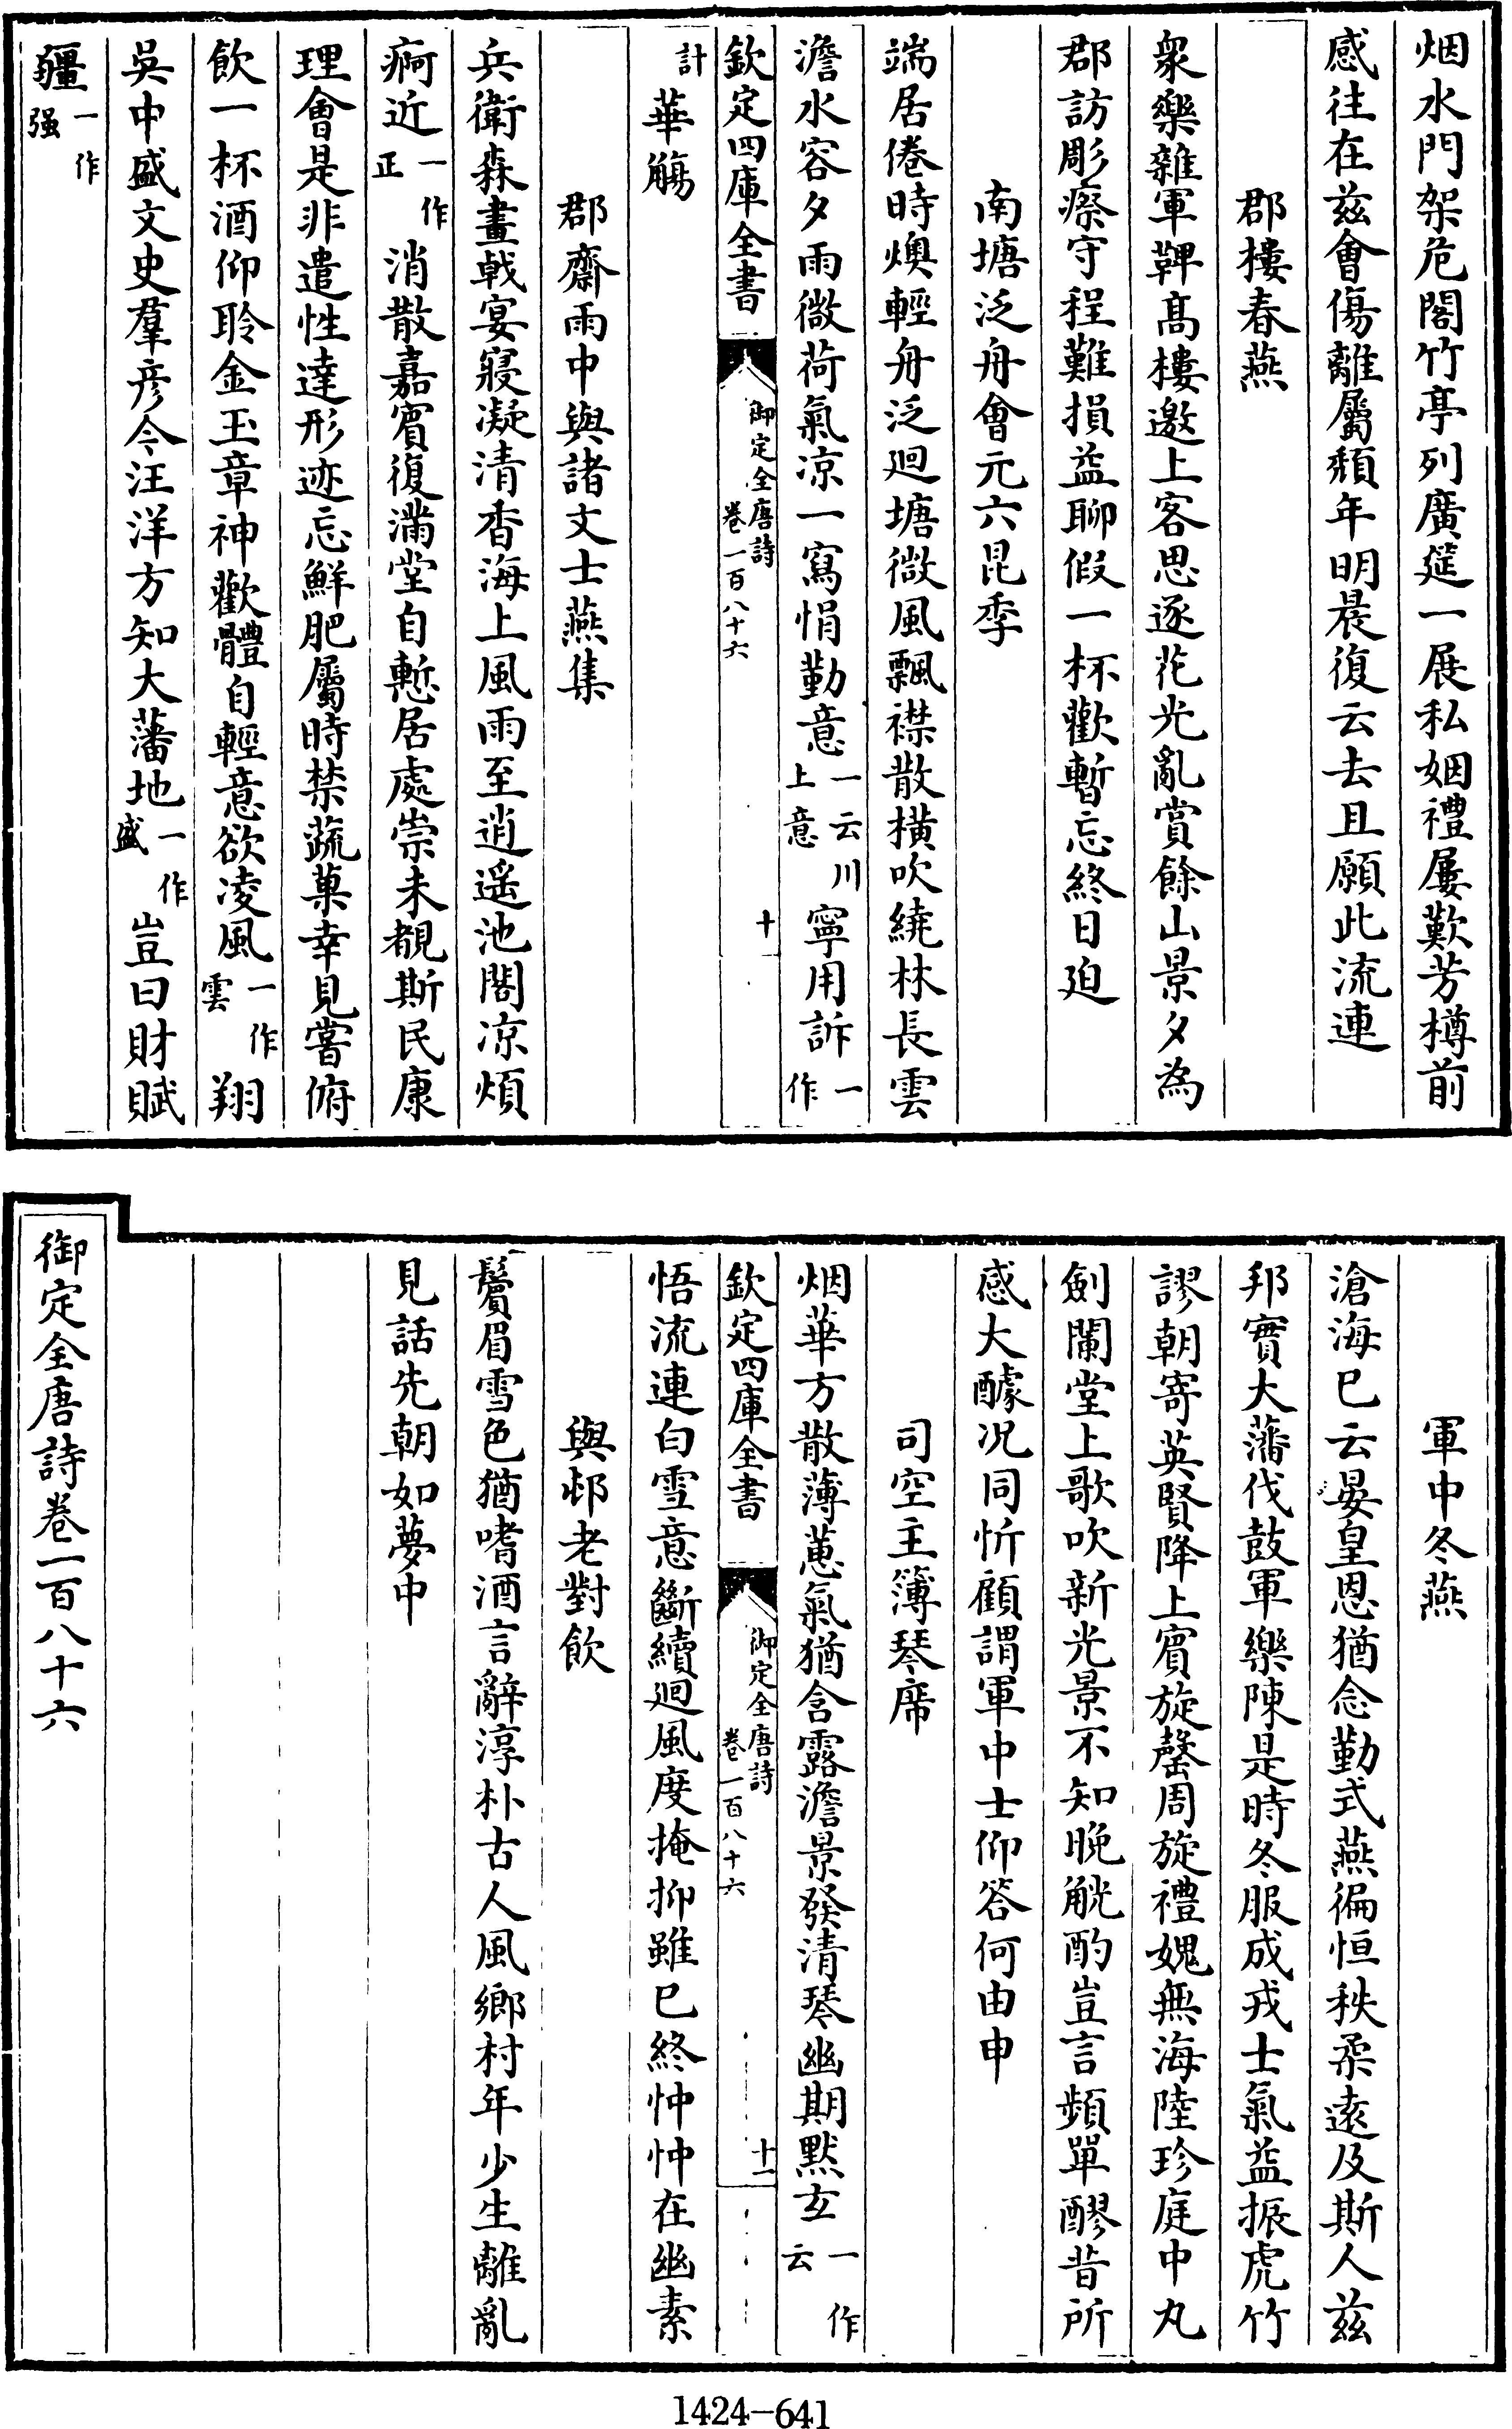 烟水門架危閣竹亭列廣筵一展私姻禮屢歎芳樽前
感往在兹會傷離屬頽年明晨復云去且願此流連
郡樓春燕
衆樂雜軍鞞髙樓邀上客思逐花光亂賞餘山景夕為
郡訪彫瘵守程難損益聊假一杯歡暫忘終日迫
南塘泛舟會元六昆季
端居倦時燠輕舟泛迴塘微風飄襟散橫吹繞林長雲
澹水容夕雨微荷氣凉一寫悁勤意一云川上意寧用訴一作
欽定四庫全書
御定全唐詩
卷一百八十六
十
計華觴
郡齋雨中與諸文士燕集
兵衛森畫戟宴寢凝清香海上風雨至逍遥池閣凉煩
痾近一作正消散嘉賓復滿堂自慙居處崇未覩斯民康
理會是非遣性達形迹忘鮮肥屬時禁蔬菓幸見嘗俯
飲一杯酒仰聆金玉章神歡體自輕意欲凌風一作雲翔
吳中盛文史羣彦今汪洋方知大藩地一作盛豈曰財賦
疆一作强
軍中冬燕
滄海已云晏皇恩猶念勤式燕徧恒秩柔逺及斯人兹
邦實大藩伐鼓軍樂陳是時冬服成戎士氣益振虎竹
謬朝寄英賢降上賓旋罄周旋禮媿無海陸珍庭中丸
劍闌堂上歌吹新光景不知晚觥酌豈言頻單醪昔所
感大醵况同忻顧謂軍中士仰答何由申
司空主簿琴席
烟華方散薄蕙氣猶含露澹景發清琴幽期黙玄一作云
欽定四庫全書
御定全唐詩
卷一百八十六
十一
悟流連白雪意斷續迴風度掩抑雖已終忡忡在幽素
與邨老對飲
鬢眉雪色猶嗜酒言辭淳朴古人風鄉村年少生離亂
見話先朝如夢中
御定全唐詩卷一百八十六
1424-641